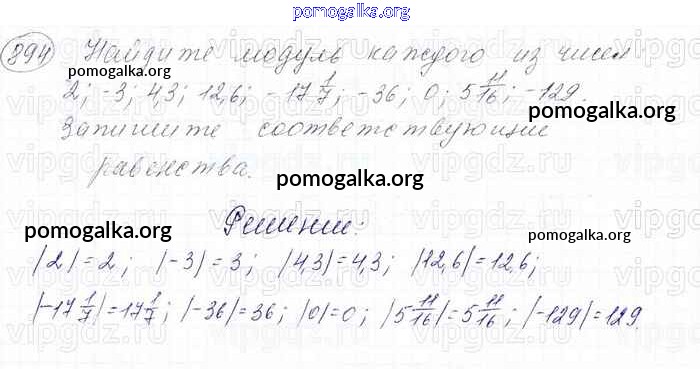 pomogalka.org
894 Найдите модуль каждого из чисел
pomogalka.org
2; -3; 4,3; 12,6; -17 1/7; -36; 0; 5 11/16; -129.
pomogalka.org
Запишите соответствующие
равенства.
pomogalka.org
Решение:
pomogalka.org
pomogalka.org
|2|=2; |-3|=3; |4,3|=4,3; |12,6|=12,6;
|-17 1/7|=17 1/7; |-36|=36; |0|=0; |5 11/16|=5 11/16; |-129|=129.
vipgdz.ru